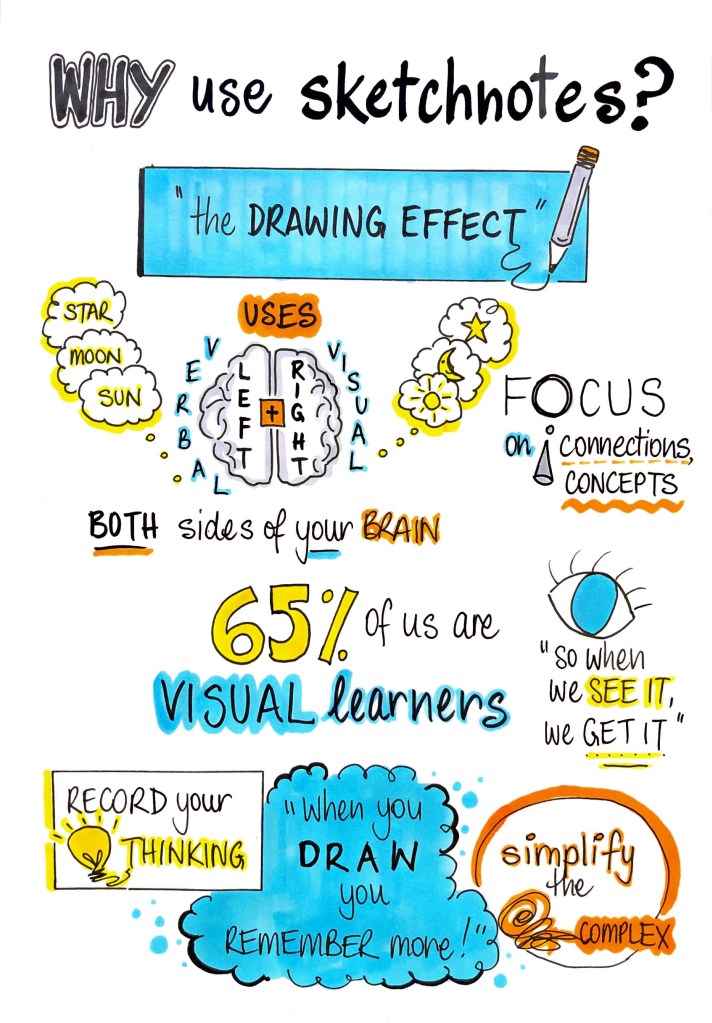 WHY use sketchnotes?
"the DRAWING EFFECT"
STAR
MOON
SUN
USES
VERBAL
LEFT
+
RIGHT
VISUAL
BOTH sides of your BRAIN
FOCUS
on connections,
CONCEPTS
65% of us are
VISUAL learners
"so when
we SEE IT,
we GET IT"
RECORD your
THINKING
"When you
DRAW
you
REMEMBER more!"
simplify
the
COMPLEX